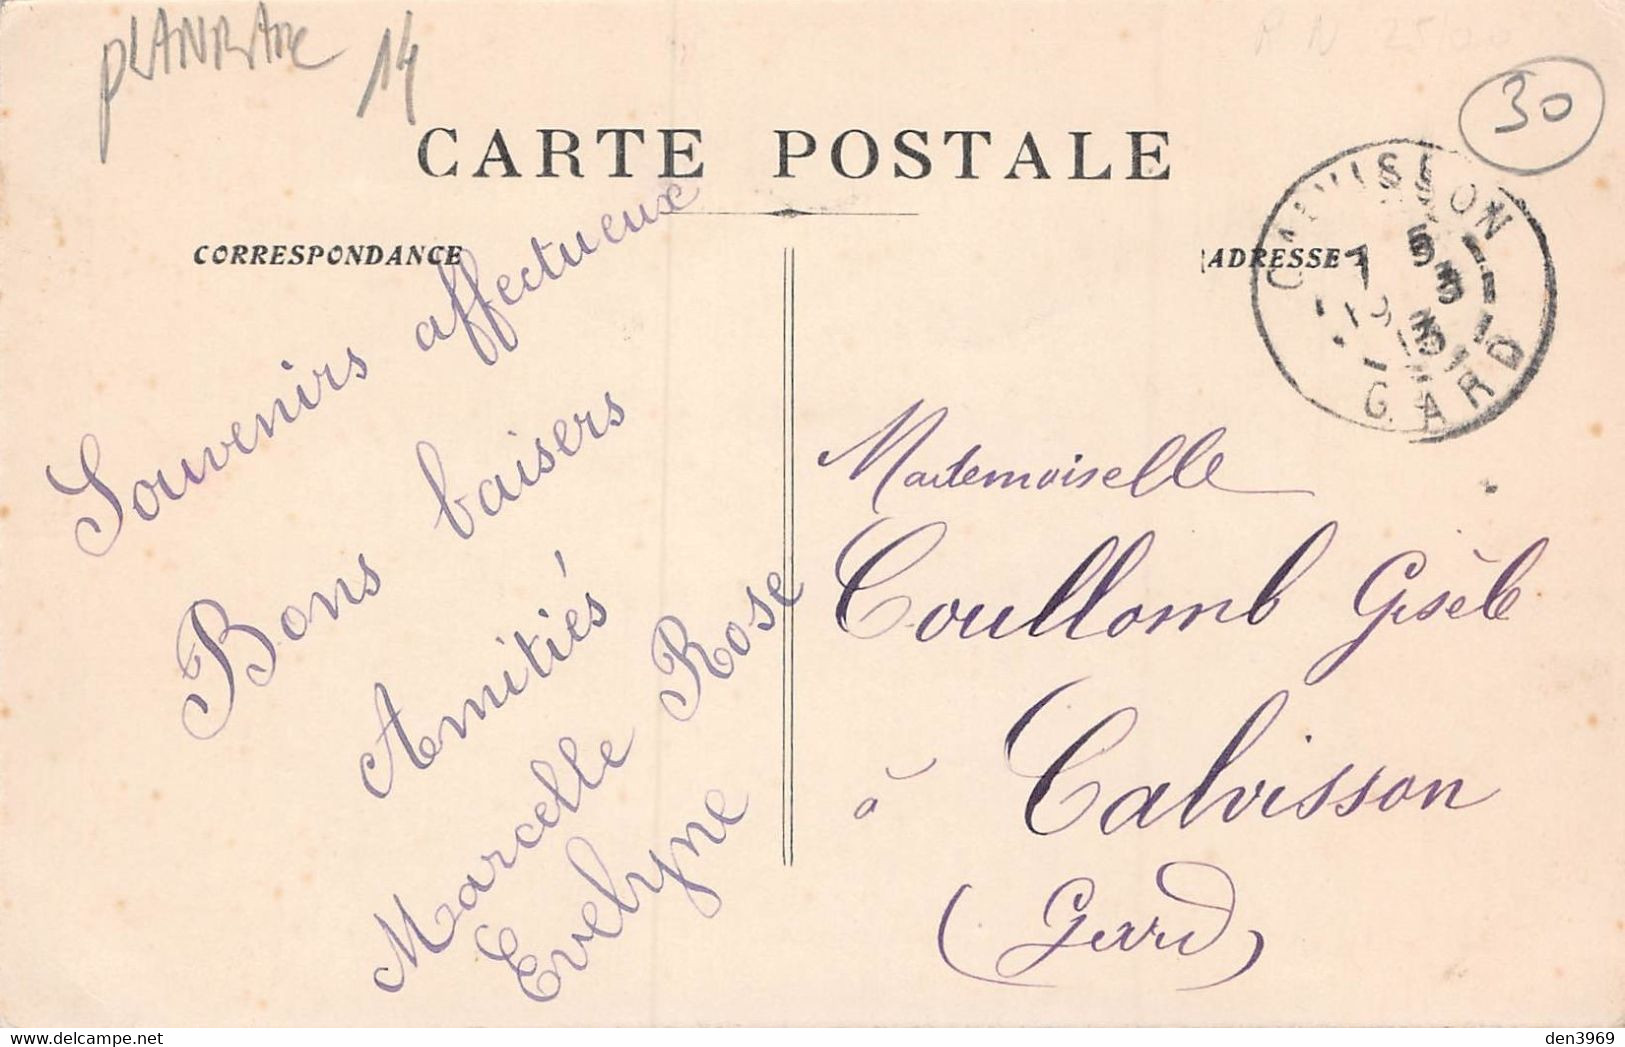 14
30
CARTE POSTALE
CORRESPONDANCE
ADRESSE
CALVISSON
7 5
3
GARD
Souvenirs affectueux
Bons baisers
Amitiés
Marcelle Rose
Evelyne
Mademoiselle
Coullomb Gisèle
à Calvisson
(Gard)
den3969